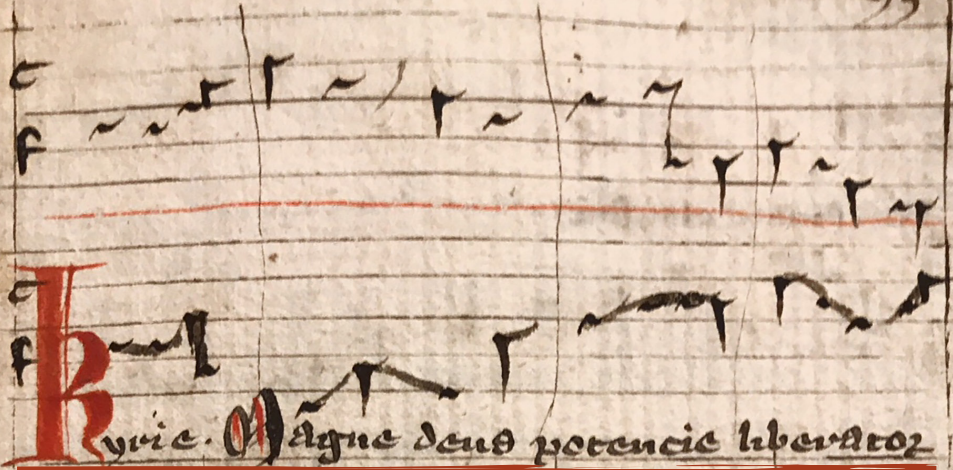 c
f
c
f
Kyrie. Magne deus potencie liberator